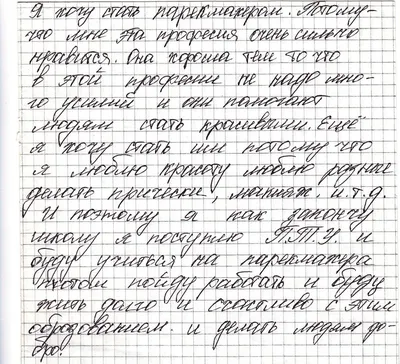 Я хочу стать парекмахером. Потому-
что мне эта професия очень сильно
нравится. Она хороша тем то что
в этой професии не надо мно-
го усилий и они помогают
людям стать красивыми. Ещё
я хочу стать им потому что
я люблю красоту люблю разные
делать прически, макияж. и.т.д.
И поэтому я как закончу
школу я поступлю П.Т.У. и
буду учиться на парекмахера
потом пойду работать и буду
жить долго и счастливо с этим
образованием. и делать людям до-
бро.